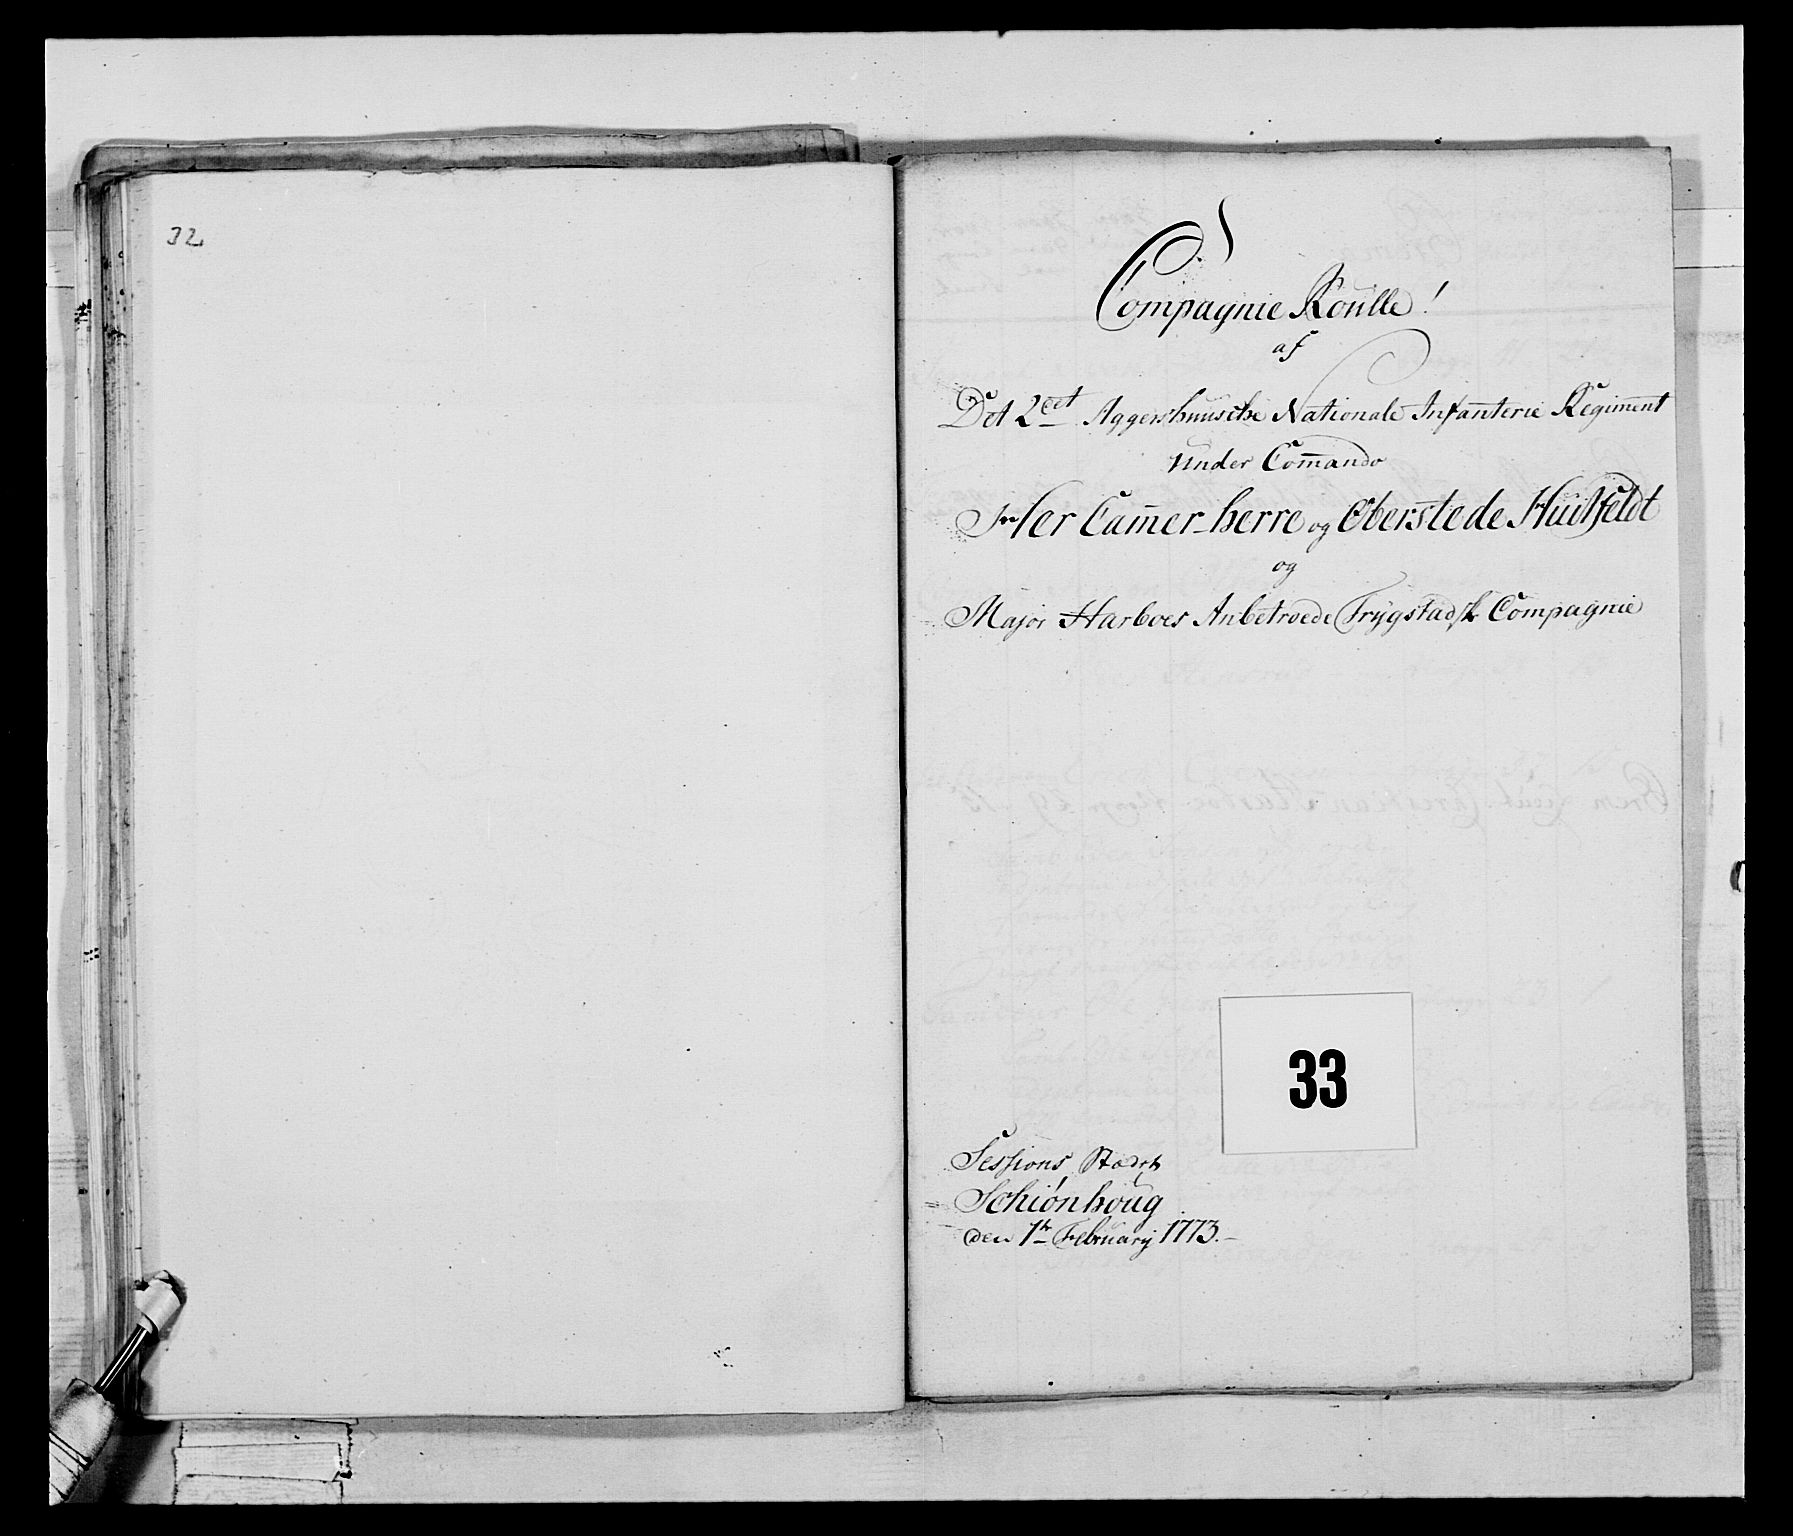 32
Compagnie Roulle!
af
Det 2det Aggershuusche Nationale Infanterie Regiment
under Comando
Her Camer-herre og Oberste de Huitfeldt
og
Major Harboes Anbetroede Trygstadsk Compagnie
33
Sessions Stædet
Schiönhoug
den 1te February 1773.